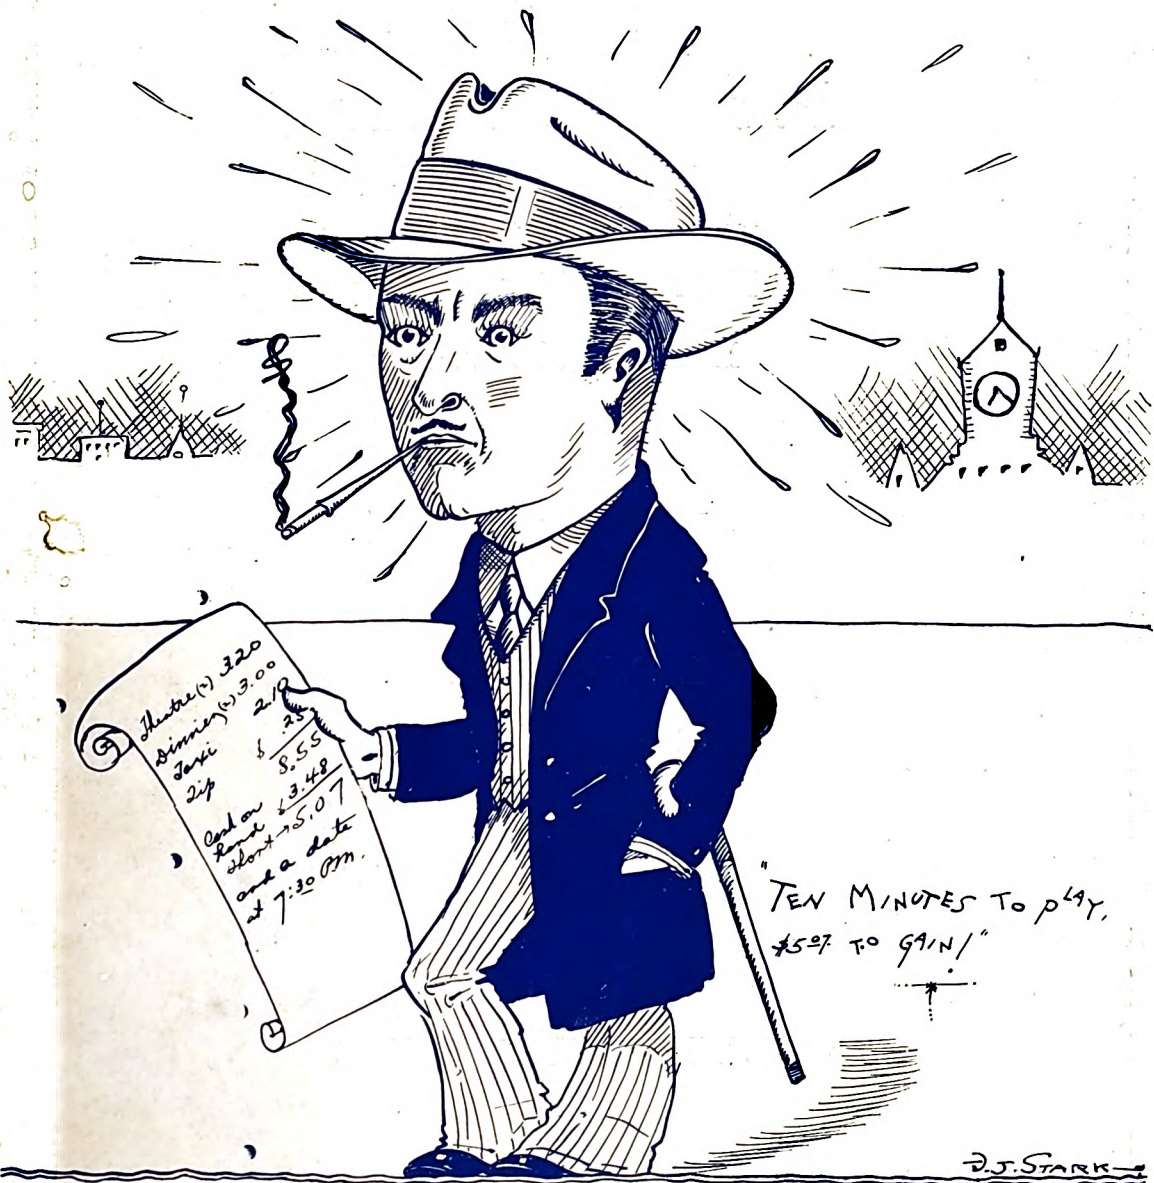 Theatre (2) 3.20
Dinner (2) 3.00
Taxi 2.10
Tip $ .25
8.55
Cash on
hand $ 3.48
short → 5.07
and a date
at 7:30 P.M.
"TEN MINUTES TO PLAY,
$5.07 TO GAIN!"
D.J. STARK